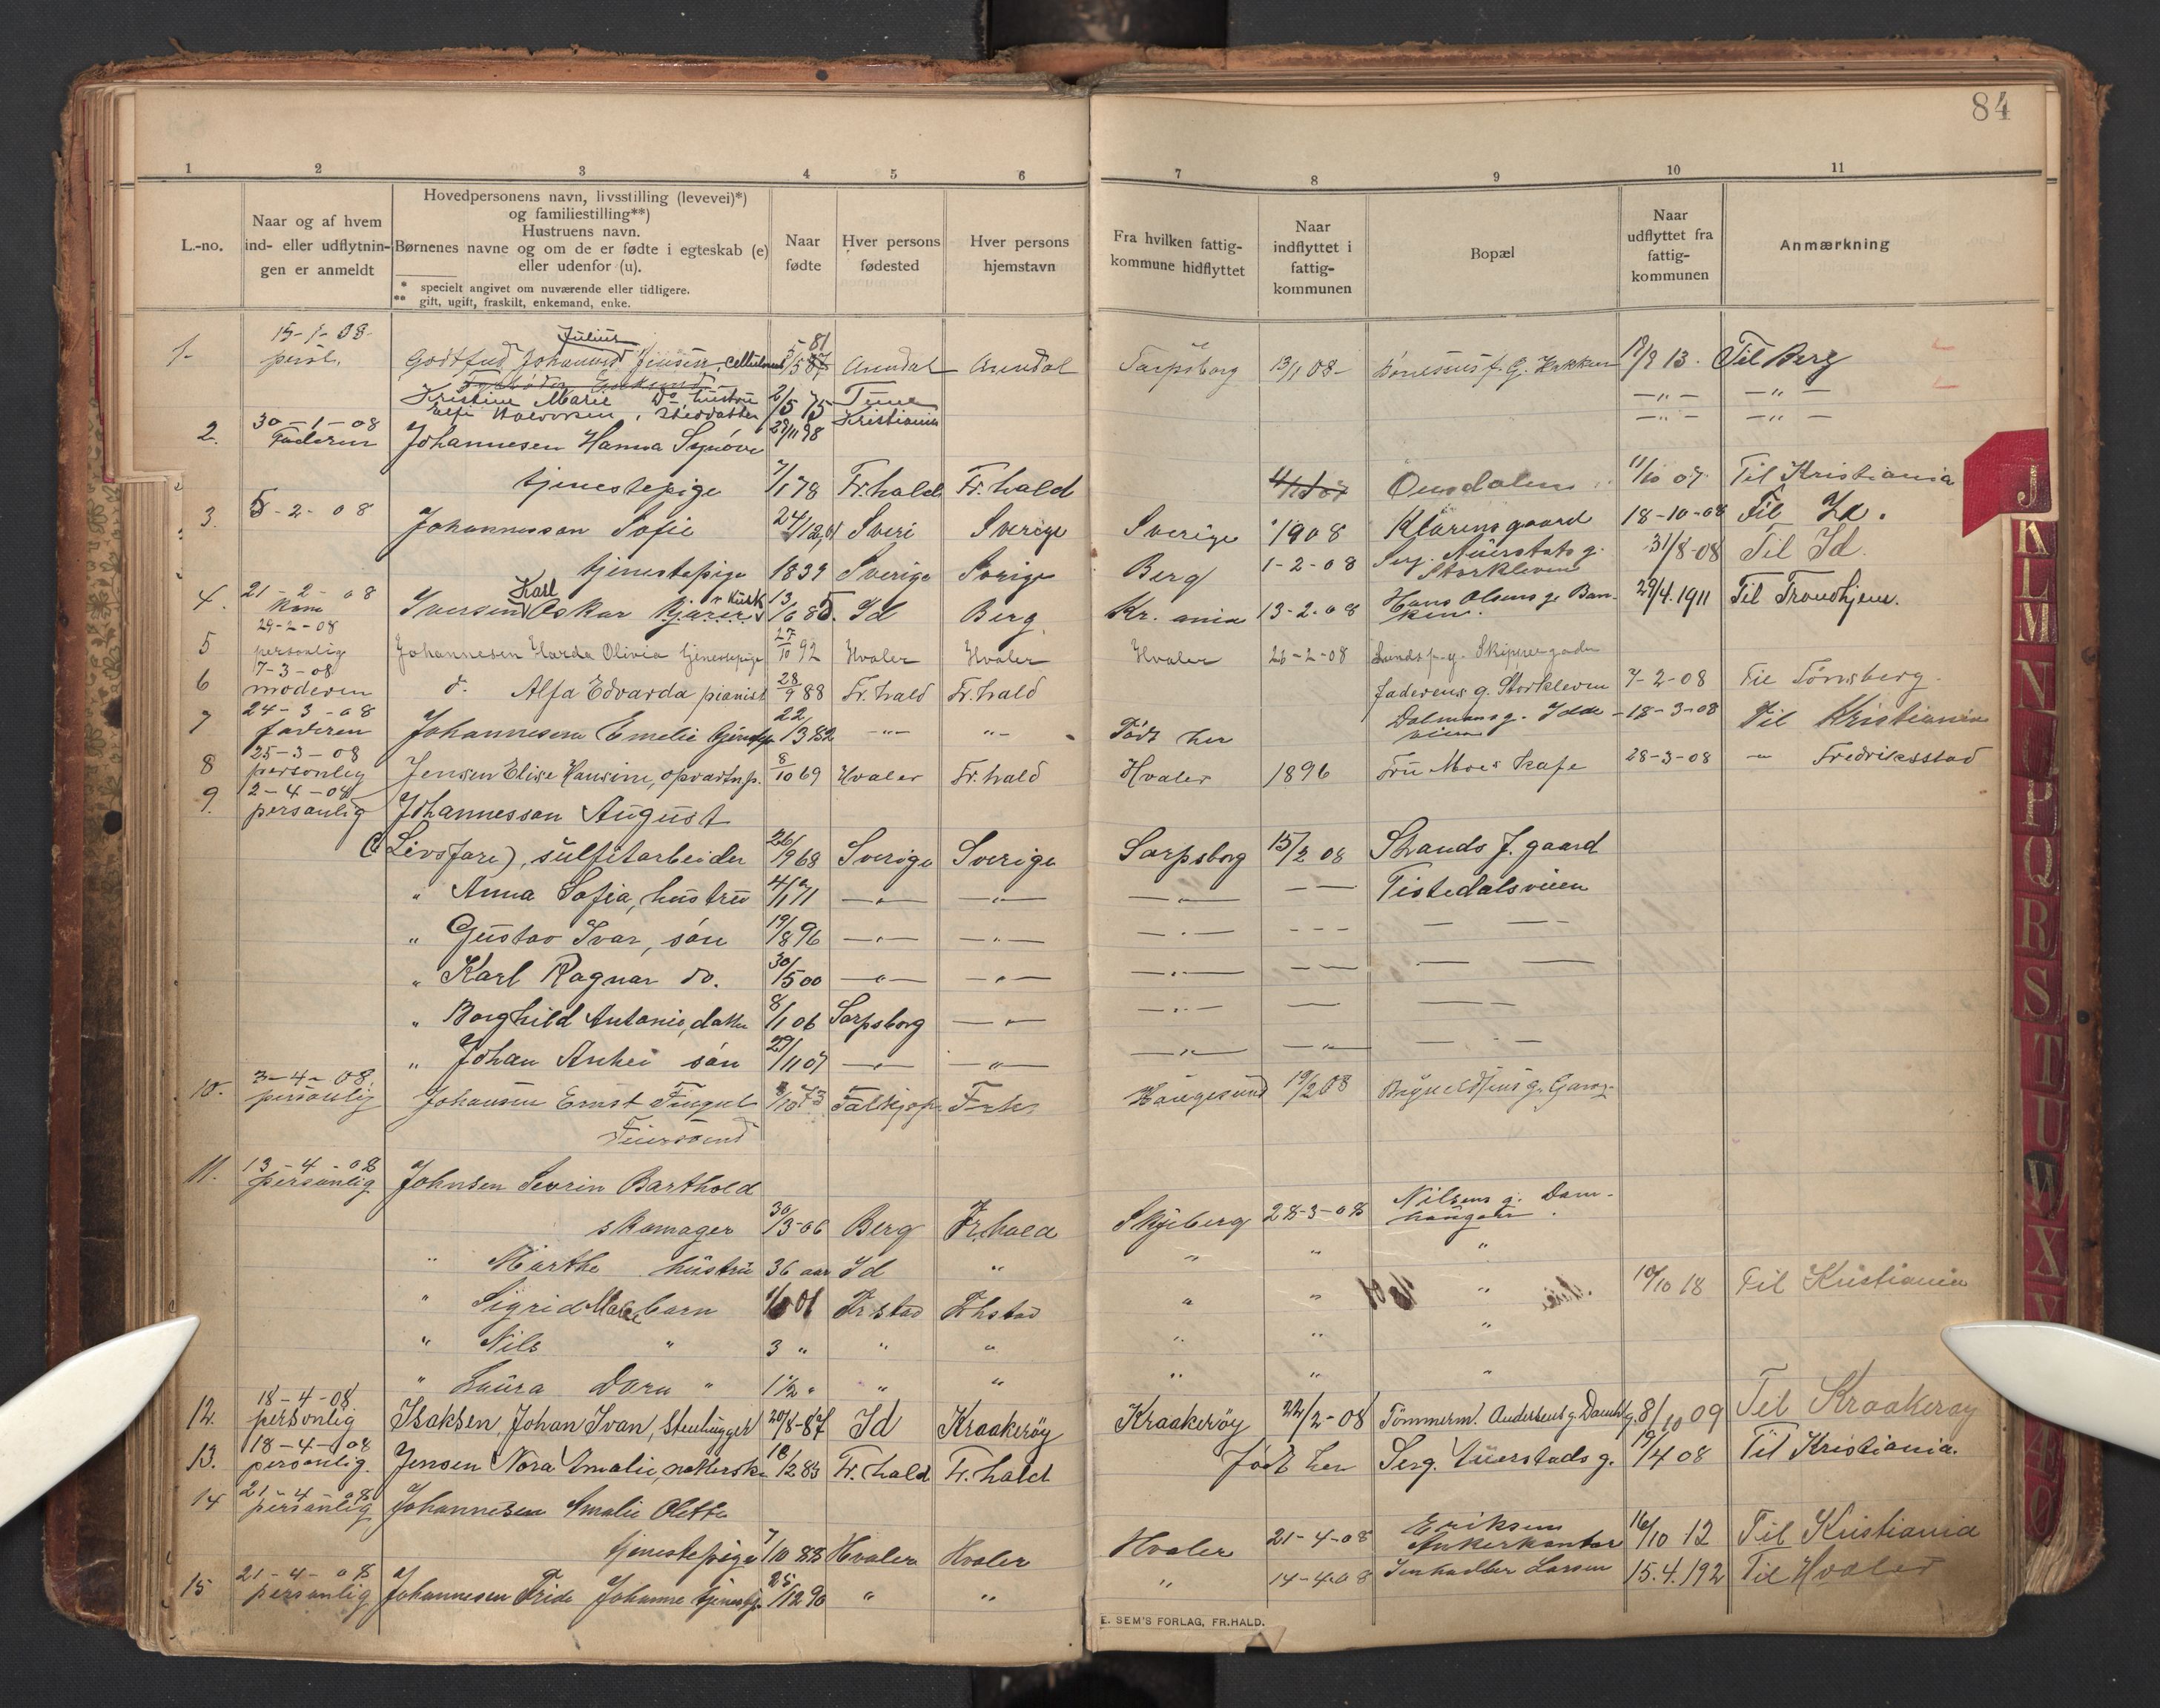 84
1 2 3 4 5 6 7 8 9 10 11
L.-no.
Naar og af hvem ind- eller udflytnin-gen er anmeldt
Hovedpersonens navn, livsstilling (levevei)*) og familiestilling**)
Hustruens navn.
Børnenes navne og om de er fødte i egteskab (e) eller udenfor (u).
* specielt angivet om nuværende eller tidligere.
** gift, ugift, fraskilt, enkemand, enke.
Naar fødte
Hver persons fødested
Hver persons hjemstavn
Fra hvilken fattig-kommune hidflyttet
Naar indflyttet i fattig-kommunen
Bopæl
Naar udflyttet fra fattig-kommunen
Anmærkning
15-1-08
1. Julius
Johannes Jensen, Arendal Arendal Sarpsborg 13/1 08 13. Til Berg
Kristine Marie Do hustru 2/5 75 Tune — " — — " —
Halvorsen, steddatter 29/11 98 Kristiania — " — — " —
30-1-08
2. Faderen Johannesen Hanna Synöve
tjenestepige 7/1 78 Fr.hald Fr.hald 11/10 07 Til Kristiania
3. 5-2-08 Johannesson Sofie 24/12 Sveri Sverige Sverige 1908 Klörensgaard 18-10-08 Til Id.
tjenestepige 1839 Sverige Sverige Berg 1-2-08 Storkleven 31/8-08 Til Id.
4. 21-2-08 Iversen Karl Oskar 13/6 85. Id Berg Kr.ania 13-2-08 Hans Olsens g. Ban-ken. 29/4.1911 Til Trondhjem.
29-2-08
5 personlig Johannesen Harda Olivia tjenestepige 27/10 92 Hvaler Hvaler Hvaler 26-2-08 Skippergaden
7-3-08
6 moderen d. Alfa Edvarda pianist 28/9 88 Fr.hald Fr.hald faderens g. Storkleven 7-2-08 Til Tönsberg.
24-3-08
7 faderen Johannesen Emelie 22/1 3 82 — " — " — Født her Dalmans g. Idde-veien 18-3-08 Til Kristiania
25-3-08
8 personlig Jensen Elise Hansine, opvartnp. 8/10 69 Hvaler Fr.hald Hvaler 1896 Fru Moes Kafe 28-3-08 — " Fredriksstad
2-4-08
9. personlig Johannesson August
(Livsfare), sulfitarbeider 26/9 68 Sverige Sverige Sarpsborg 15/2 08 Strands f. gaard
" Anna Sofia, hustru 4/1 71 — " — — " — — " — — — Tistedalsveien
" Gustav Ivar, sön 19/8 96 — " — — " — — " — - - - — — —
" Karl Ragnar do. 30/5 00 — " — — " — — " — — — — —
" Borghild Antonie, datter 8/1 06 Sarpsborg — " — — " — — — — —
" Johan sön 29/11 07 — " — — " — — " — — " — — - —
3-4-08.
10. personlig Johansen Ernst Fingul 73 Frh. Haugesund 19/2 08
13-4-08
11. personlig Johnsen Sevrin Barthold
skomager 30/3-06 Berg Fr.hald Skjeberg 28-3-08 Nilsens g. Dam-
" Marthe hustru 36 aar Id " " " "
" Sigrid Marie barn 01 Fr stad Frhstad " " " 10/10 18 Til Kristiania
" Nils " 3 " " " " " "
" Laura Dora " 1½ " " " " " "
18-4-08
12. personlig Isaksen, Johan Ivan, Stenhugger 20/8-87 Id Kraakeröy Kraakeröy 22/2-08 Tömmerm. Andersens g. Damh.g. 8/10 09 Til Kraakeröy
18-4-08
13. personlig. Jensen Nora Amalie, 18/12 83 Fr.hald Fr.hald Født her Serg. g. 19/4 08 Til Kristiania.
21-4-08
14 personlig Johannesen Amalie Olette
tjenestepige 7/10 88 Hvaler Hvaler Hvaler 21-4-08 Eriksen Ankerkontor 16/10 12 Til Kristiania
21-4-08
15 personlig Johannesen Frida Johanne tjenestep. 25/12 90 " " " 14-4-08 Larsen 15.4.192 Til Hvaler
E. SEM'S FORLAG, FR.HALD.
J K L M N P Q R S T U W X